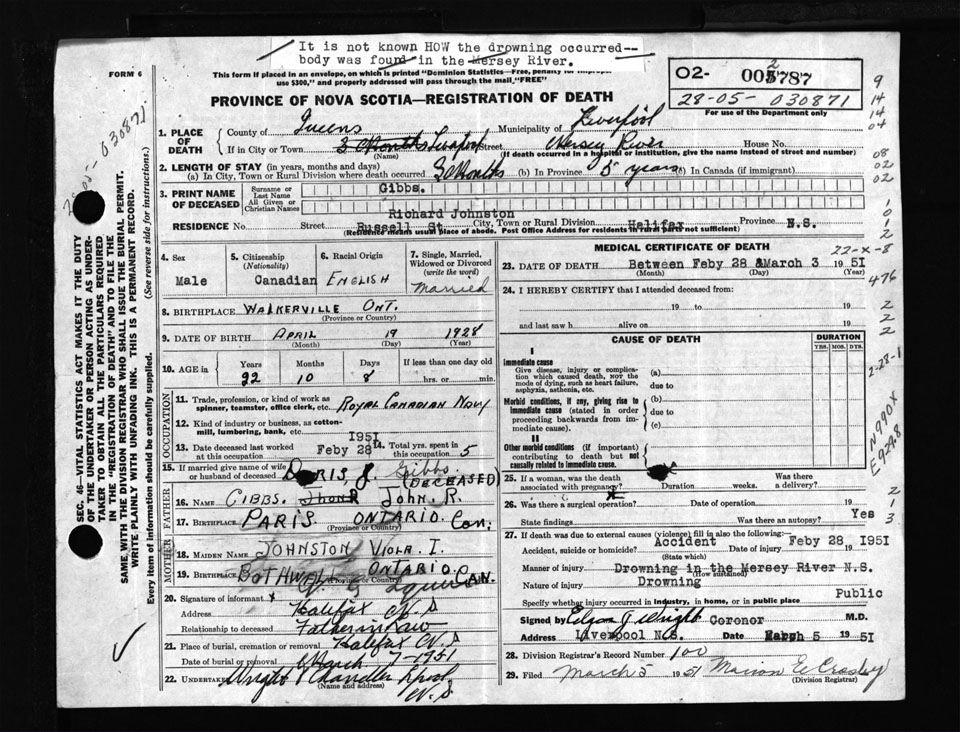 It is not known HOW the drowning occurred--
body was found in the Mersey River.
FORM 6
This form if placed in an envelope, on which is printed "Dominion Statistics—Free, penalty for improper
use $300," and properly addressed will pass through the mail, "FREE"
PROVINCE OF NOVA SCOTIA—REGISTRATION OF DEATH
02-
2
005787
28-05-030871
For use of the Department only
9
14
14
04
08
02
02
1. PLACE OF DEATH
County of Queens Municipality of Liverpool
If in City or Town 3 Months Street Mersey River House No.
(Name) (If death occurred in a hospital or institution, give the name instead of street and number)
2. LENGTH OF STAY (in years, months and days)
(a) In City, Town or Rural Division where death occurred 3 Months (b) In Province 5 years (c) In Canada (if immigrant)
3. PRINT NAME OF DECEASED
Surname or Last Name Gibbs.
All Given or Christian Names Richard Johnston
RESIDENCE No. Street Russell St. City, Town or Rural Division Halifax Province N.S.
(Residence means usual place of abode. Post Office Address for residents in rural part not sufficient)
4. Sex Male
5. Citizenship (Nationality) Canadian
6. Racial Origin ENGLISH
7. Single, Married, Widowed or Divorced (write the word) Married
8. BIRTHPLACE WALKERVILLE ONT.
(Province or Country)
9. DATE OF BIRTH APRIL 19 1928
(Month) (Day) (Year)
10. AGE in Years 22 Months 10 Days 8 If less than one day old hrs. or min.
OCCUPATION
11. Trade, profession, or kind of work as spinner, teamster, office clerk, etc. ROYAL CANADIAN NAVY
12. Kind of industry or business, as cotton-mill, lumbering, bank, etc.
13. Date deceased last worked at this occupation Feby 28 1951
14. Total yrs. spent in this occupation 5
15. If married give name of wife or husband of deceased DORIS, J. Gibbs. (DECEASED)
FATHER
16. NAME GIBBS. John. R.
17. BIRTHPLACE PARIS. ONTARIO. Can.
(Province or Country)
MOTHER
18. MAIDEN NAME JOHNSTON VIOLA. I.
19. BIRTHPLACE BOTHWELL ONTARIO CAN.
(Province or Country)
20. Signature of informant
Address Halifax N.S
Relationship to deceased Father in Law
21. Place of burial, cremation or removal Halifax N.S
Date of burial or removal March 7-1951
22. UNDERTAKER Wright Chandler
(Name and address) N.S
MEDICAL CERTIFICATE OF DEATH
22-X-8
23. DATE OF DEATH Between Feby 28 & March 3 1951
(Month) (Day) (Year)
476
24. I HEREBY CERTIFY that I attended deceased from:
19 to 19
and last saw h alive on 19
2
2
2
CAUSE OF DEATH
DURATION
YRS. MOS. DYS.
I
Immediate cause
Give disease, injury or complication which caused death, NOT the mode of dying, such as heart failure, asphyxia, asthenia, etc.
(a)
due to
Morbid conditions, if any, giving rise to immediate cause (stated in order proceeding backwards from immediate cause).
(b)
due to
(c)
II
Other morbid conditions (if important) contributing to death but not causally related to immediate cause.
2-28-1
N990X
E929.8
25. If a woman, was the death associated with pregnancy? Duration weeks. Was there a delivery?
26. Was there a surgical operation? Date of operation 19
State findings Was there an autopsy? Yes
2
1
3
27. If death was due to external causes (violence) fill in also the following:
Accident, suicide or homicide? Accident Date of injury Feby 28 1951
(State which)
Manner of injury Drowning in the Mersey River N.S.
(How sustained)
Nature of injury Drowning
Specify whether injury occurred in industry, in home, or in public place Public
Signed by Coronor M.D.
Address Liverpool N.S. Date March 5 1951
28. Division Registrar's Record Number 100
29. Filed March 5 1951 Marion E. Crosby
(Division Registrar)
SEC. 46—VITAL STATISTICS ACT MAKES IT THE DUTY
OF THE UNDERTAKER OR PERSON ACTING AS UNDER-
TAKER TO OBTAIN ALL THE PARTICULARS REQUIRED
IN THE "REGISTRATION OF DEATH" AND TO FILE THE
SAME WITH THE DIVISION REGISTRAR WHO SHALL ISSUE THE BURIAL PERMIT.
WRITE PLAINLY WITH UNFADING INK. THIS IS A PERMANENT RECORD.
Every item of information should be carefully supplied. (See reverse side for instructions.)